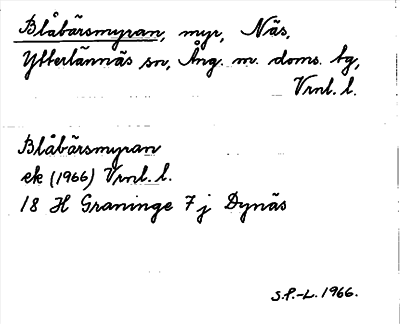 Blåbärsmyran, myr, Näs,
Ytterlännäs sn, Ång. m. doms. bg,
Vrnl. l.
Blåbärsmyran
ek (1966) Vrnl. l.
18 H Graninge 7 j Dynäs
S.P.-L. 1966.